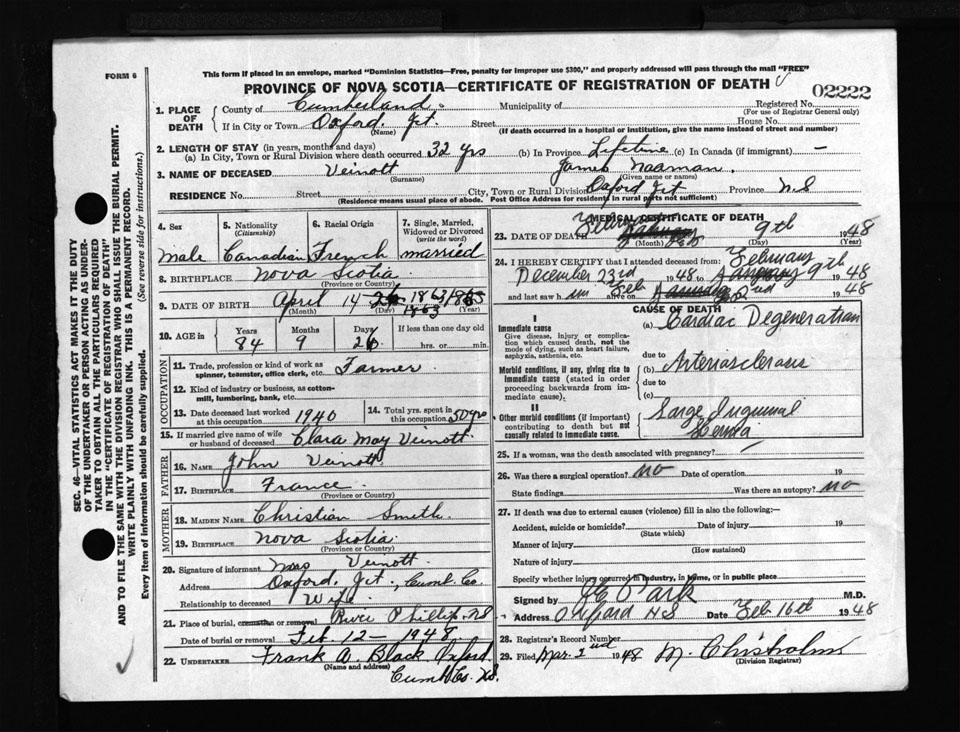 FORM 6
This form if placed in an envelope, marked "Dominion Statistics—Free, penalty for improper use $300," and properly addressed will pass through the mail "FREE"
PROVINCE OF NOVA SCOTIA—CERTIFICATE OF REGISTRATION OF DEATH
02222
SEC. 46—VITAL STATISTICS ACT MAKES IT THE DUTY
OF THE UNDERTAKER OR PERSON ACTING AS UNDER-
TAKER TO OBTAIN ALL THE PARTICULARS REQUIRED
IN THE "CERTIFICATE OF REGISTRATION OF DEATH"
AND TO FILE THE SAME WITH THE DIVISION REGISTRAR WHO SHALL ISSUE THE BURIAL PERMIT.
WRITE PLAINLY WITH UNFADING INK. THIS IS A PERMANENT RECORD.
Every item of information should be carefully supplied. (See reverse side for instructions.)
1. PLACE OF DEATH
County of Cumberland. Municipality of Registered No.
(For use of Registrar General only)
If in City or Town Oxford Jct. Street House No.
(Name) (If death occurred in a hospital or institution, give the name instead of street and number)
2. LENGTH OF STAY (in years, months and days)
(a) In City, Town or Rural Division where death occurred 32 yrs (b) In Province Lifetime (c) In Canada (if immigrant) —
3. NAME OF DECEASED Veinott James Naaman.
(Surname) (Given name or names)
RESIDENCE No. Street City, Town or Rural Division Oxford Jct Province N.S
(Residence means usual place of abode. Post Office Address for residents in rural parts not sufficient)
4. Sex
Male
5. Nationality
(Citizenship)
Canadian
6. Racial Origin
French
7. Single, Married, Widowed or Divorced
(write the word)
married
8. BIRTHPLACE Nova Scotia
(Province or Country)
9. DATE OF BIRTH April 14 1863
(Month) (Day) (Year)
10. AGE in
Years Months Days If less than one day old
84 9 26 hrs. or min.
OCCUPATION
11. Trade, profession or kind of work as spinner, teamster, office clerk, etc. Farmer
12. Kind of industry or business, as cotton-mill, lumbering, bank, etc.
13. Date deceased last worked at this occupation 1940
14. Total yrs. spent in this occupation 50 yrs
15. If married give name of wife or husband of deceased Clara May Veinott
FATHER
16. NAME John Veinott
17. BIRTHPLACE France
(Province or Country)
MOTHER
18. MAIDEN NAME Christian Smith
19. BIRTHPLACE Nova Scotia
(Province or Country)
20. Signature of informant Mrs Veinott
Address Oxford Jct., Cumb. Co.
Relationship to deceased Wife
21. Place of burial, cremation or removal River Phillip. N.S
Date of burial or removal Feb. 12 - 1948
22. UNDERTAKER Frank A. Black Oxford
(Name and address)
Cumb. Co. N.S.
MEDICAL CERTIFICATE OF DEATH
23. DATE OF DEATH February 9th 1948
(Month) (Day) (Year)
24. I HEREBY CERTIFY that I attended deceased from:
December 23rd 1948 to February 9th 1948
and last saw him alive on Feb 2nd 1948
CAUSE OF DEATH
I
Immediate cause
Give disease, injury or complication which caused death, not the mode of dying, such as heart failure, asphyxia, asthenia, etc.
(a) Cardiac Degeneration
due to
Morbid conditions, if any, giving rise to immediate cause (stated in order proceeding backwards from immediate cause).
(b) Arteriosclerosis
due to
(c)
II
Other morbid conditions (if important) contributing to death but not causally related to immediate cause.
Large Inguinal
Hernia
25. If a woman, was the death associated with pregnancy?
26. Was there a surgical operation? no Date of operation 19
State findings Was there an autopsy? no
27. If death was due to external causes (violence) fill in also the following:—
Accident, suicide or homicide? Date of injury 19
(State which)
Manner of injury
(How sustained)
Nature of injury
Specify whether injury occurred in industry, in home, or in public place
Signed by Park M.D.
Address Oxford N S Date Feb 16th 1948
28. Registrar's Record Number
29. Filed Mar. 2nd 1948 M. Chisholm
(Division Registrar)